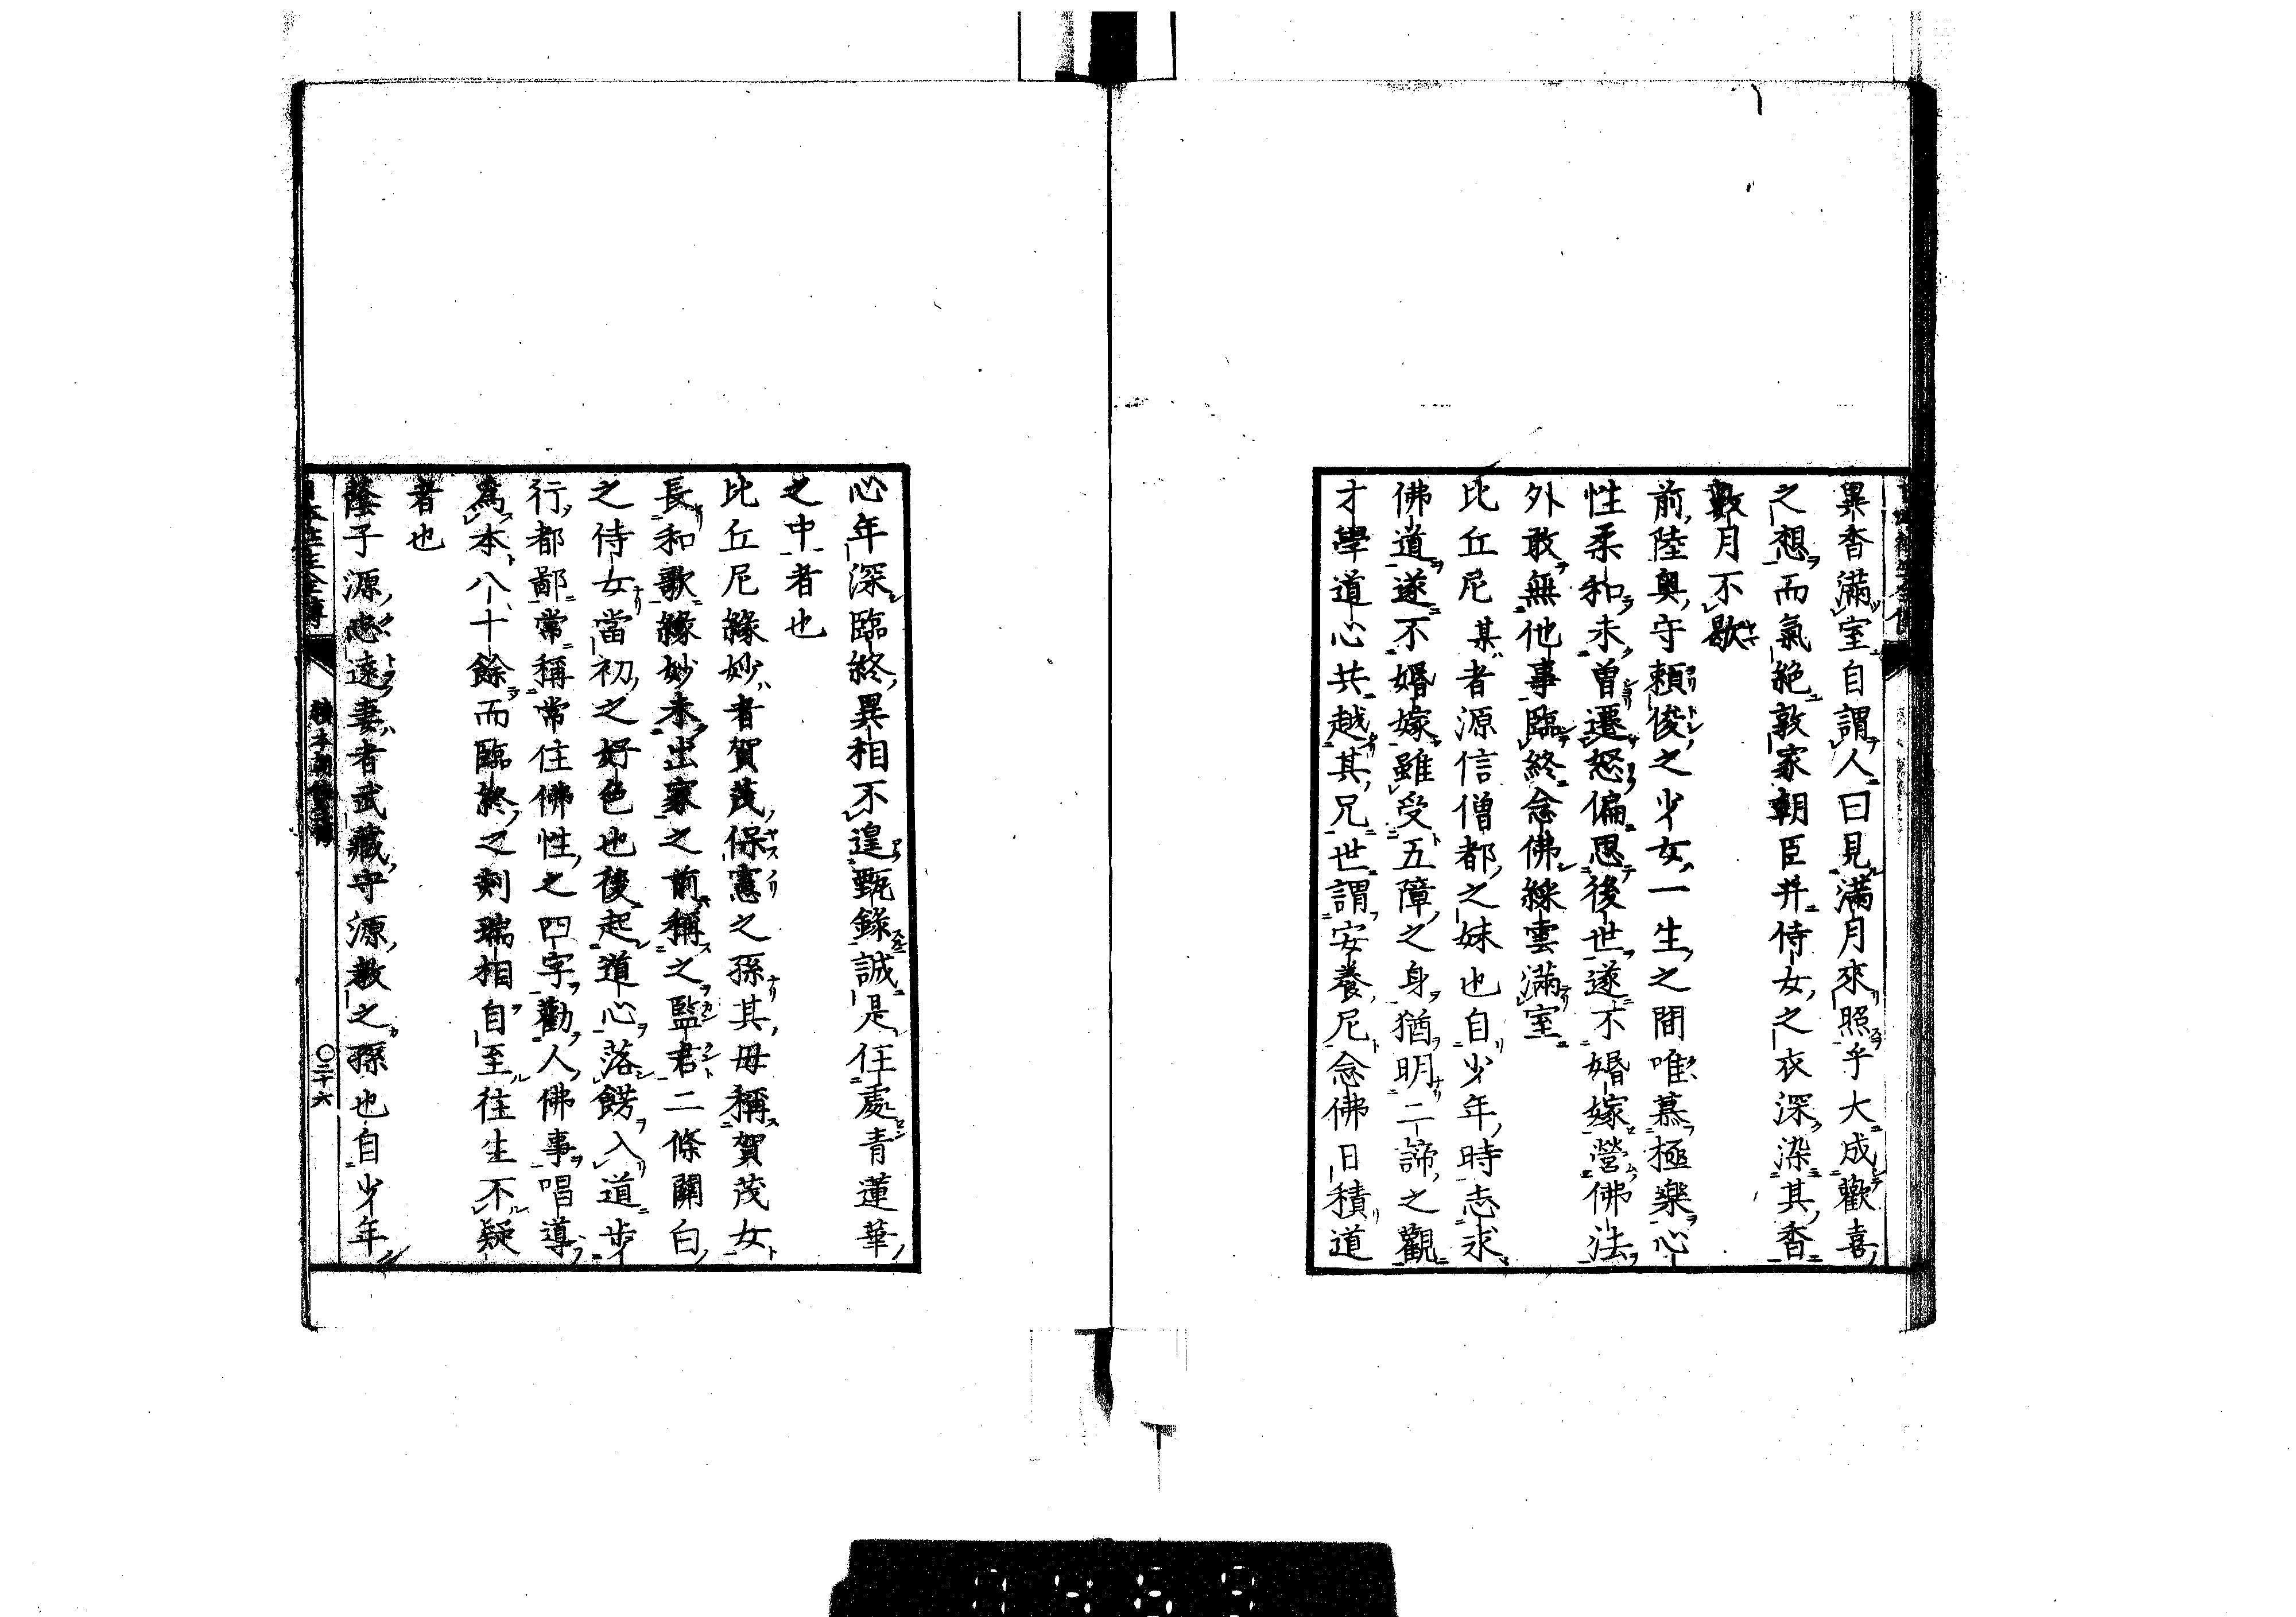 異香滿室自謂人曰見滿月來照乎大成歡喜
之想而氣絶敦家朝臣并侍女之衣深染其香
數月不歇
前陸奥守頼俊之少女一生之間唯慕極樂心
性柔和未曽遷怒偏思後世遂不婚嫁營佛法
外敢無他事臨終念佛綵雲滿室
比丘尼某者源信僧都之妹也自少年時志求
佛道遂不婚嫁雖受五障之身猶明二諦之觀
才學道心共越其兄世謂安養尼念佛日積道
心年深臨終異相不遑甄錄誠是住處青蓮華
之中者也
比丘尼緣妙者賀茂保憲之孫其母稱賀茂女
長和歌緣妙未出家之前稱之監君二條關白
之侍女當初之好色也後起道心落餝入道步
行都鄙常稱常住佛性之四字勸人佛事唱導
為本八十餘而臨終之刻瑞相自至往生不疑
者也
蔭子源忠遠妻者武藏守源教之孫也自少年
日本往生全傳 續本朝傳 ○二十六